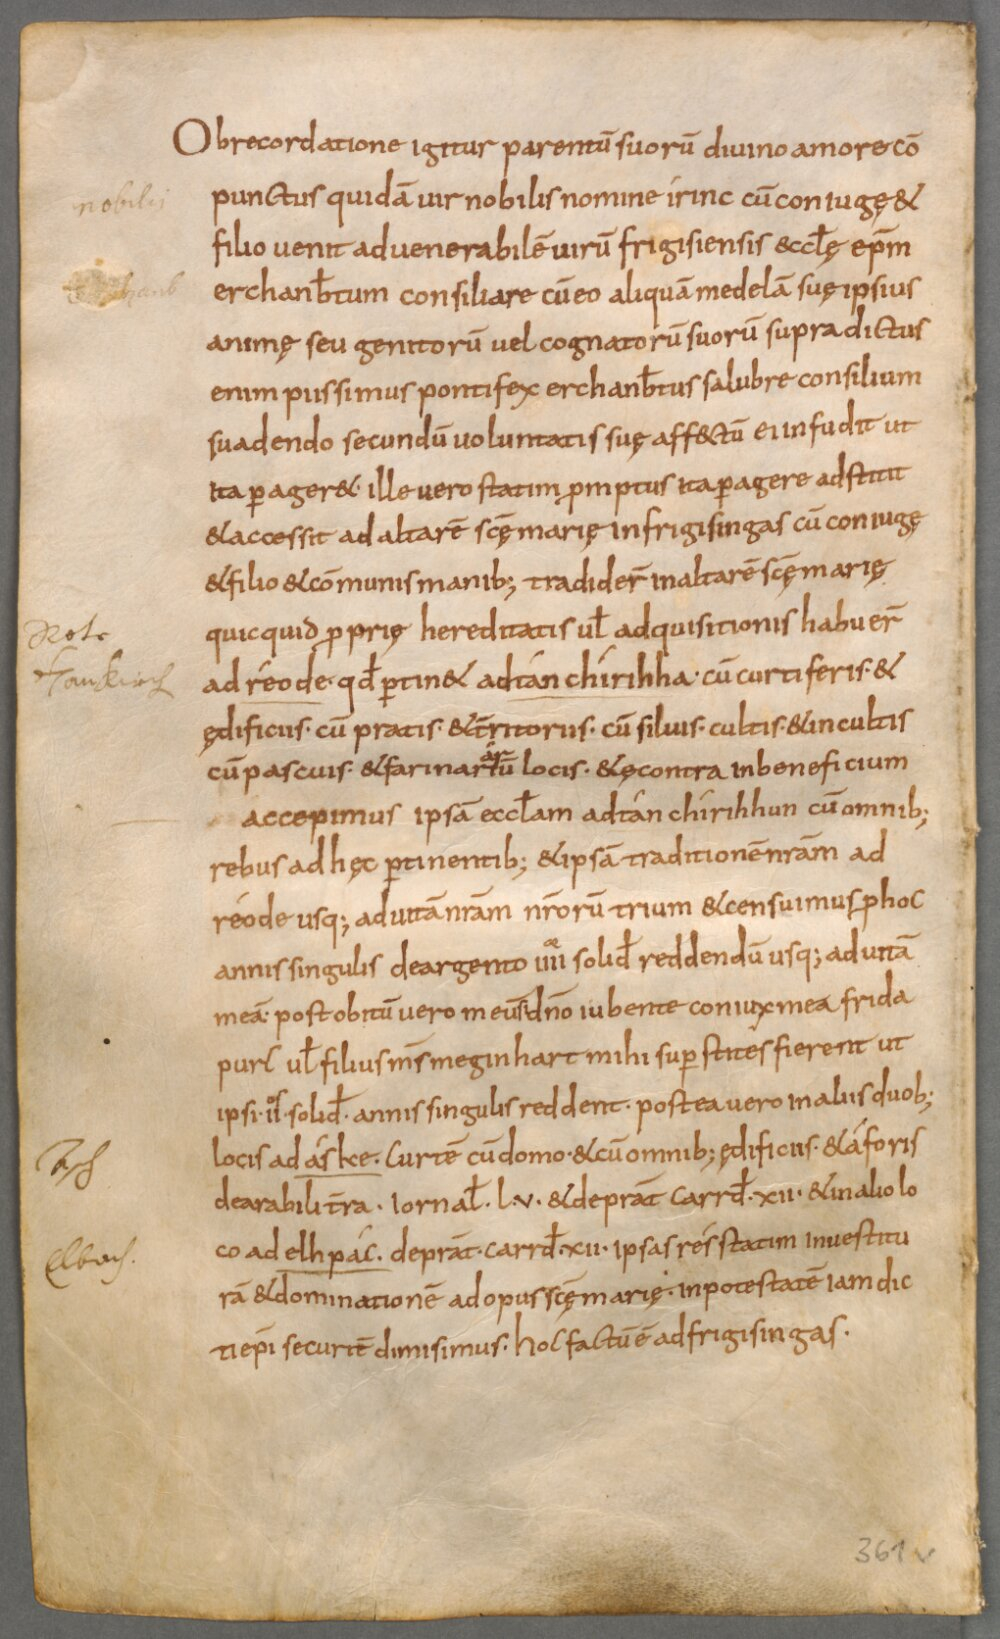 Obrecordatione igitur parentū suorū diuino amore cō
nobilis
punctus quidā uir nobilis nomine irinc cū coniugę &
filio uenit ad uenerabilē uirū frigisiensis &ccl̄ę ep̄m
erchanb̄tum consiliare cū eo aliquā medelā suę ipsius
animę seu genitorū uel cognatorū suorū supra dictus
enim piissimus pontifex erchanb̄tus salubre consilium
suadendo secundū uoluntatis suę aff&ctū ei infudit ut
ita ꝑager&. ille uero statim ꝓmptus ita ꝑagere adstitit
& accessit ad altarē scę̄ marię in frigisingas cū coniugę
& filio & cōmunis manib; tradider̄ in altarē scę̄ marię
quicquid ꝓprię hereditatis ul̄ adquisitionis habuer̄
ad réode· qd̄ ꝑtin& adtán chirihha· cū curtiferis· &
ędificiis· cū pratis· & t̄ritoriis· cū siluis· cultis· & incultis
cū pascuis· & farinariū locis· & ęcontra in beneficium
accepimus ipsā eccl̄am adtán chirihhun cū omnib;
rebus ad hęc ꝑtinentib; & ipsā traditionē nrām ad
réode usq; ad uitā nrām nr̄orū trium & censuimus ꝓ hoc
annis singulis de argento iiii solid̄ reddendū usq; ad uitā
meā· post obitū uero meūs dn̄o iubente coniux mea frida
purc ul̄ filius ms̄ meginhart mihi suꝑstites fierent ut
ipsi· ii· solid̄· annis singulis reddent· postea uero in aliis duob;
Asch
locis ad áske· Curtē cū domo· & cū omnib; ędificiis· & áforis
de arabili t̄ra· Iornal̄· l·v· & de prāt carrd̄· xii· & in alio lo
Elbach.
co ad elhpác· de prāt· carrd̄· xii· ipsas rés statim inuestitu
rā & dominationē ad opus scę̄ marię· in potestatē iam dic
ti ep̄i securit̄ dimisimus· hoc factū ē ad frigisingas·
361v